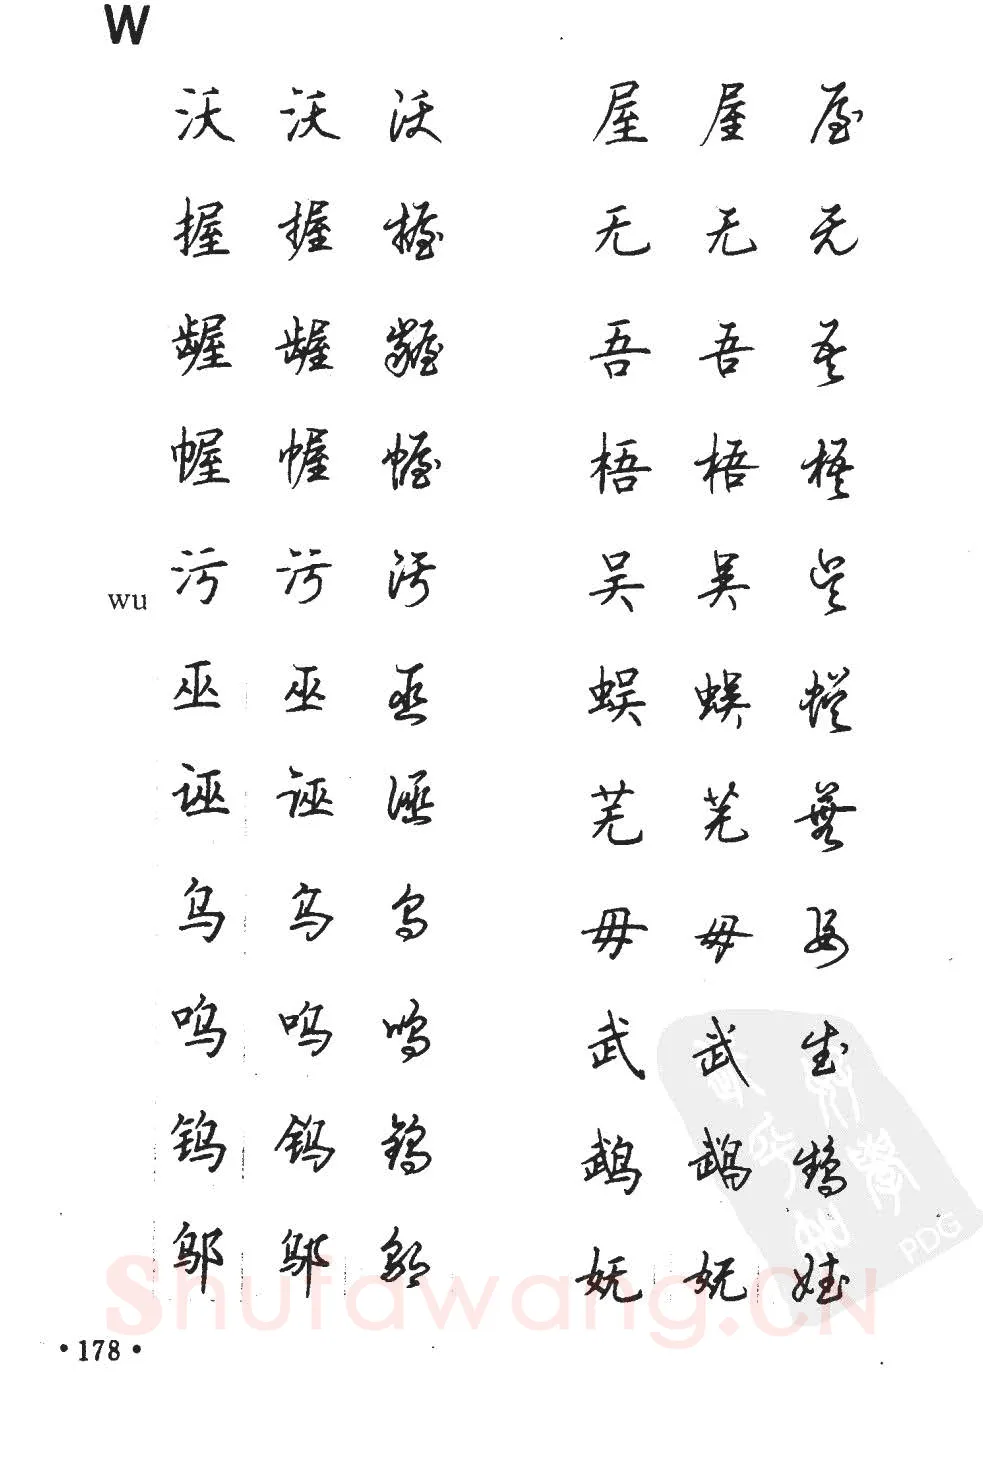 W
沃 沃 沃 屋 屋 屋
握 握 握 无 无 无
龌 龌 龌 吾 吾 吾
幄 幄 幄 梧 梧 梧
wu 污 污 污 吴 吴 吴
巫 巫 巫 蜈 蜈 蜈
诬 诬 诬 芜 芜 芜
乌 乌 乌 毋 毋 毋
呜 呜 呜 武 武 武
钨 钨 钨 鹉 鹉 鹉
邬 邬 邬 妩 妩 妩
PDG
Shufawang.CN
·178·